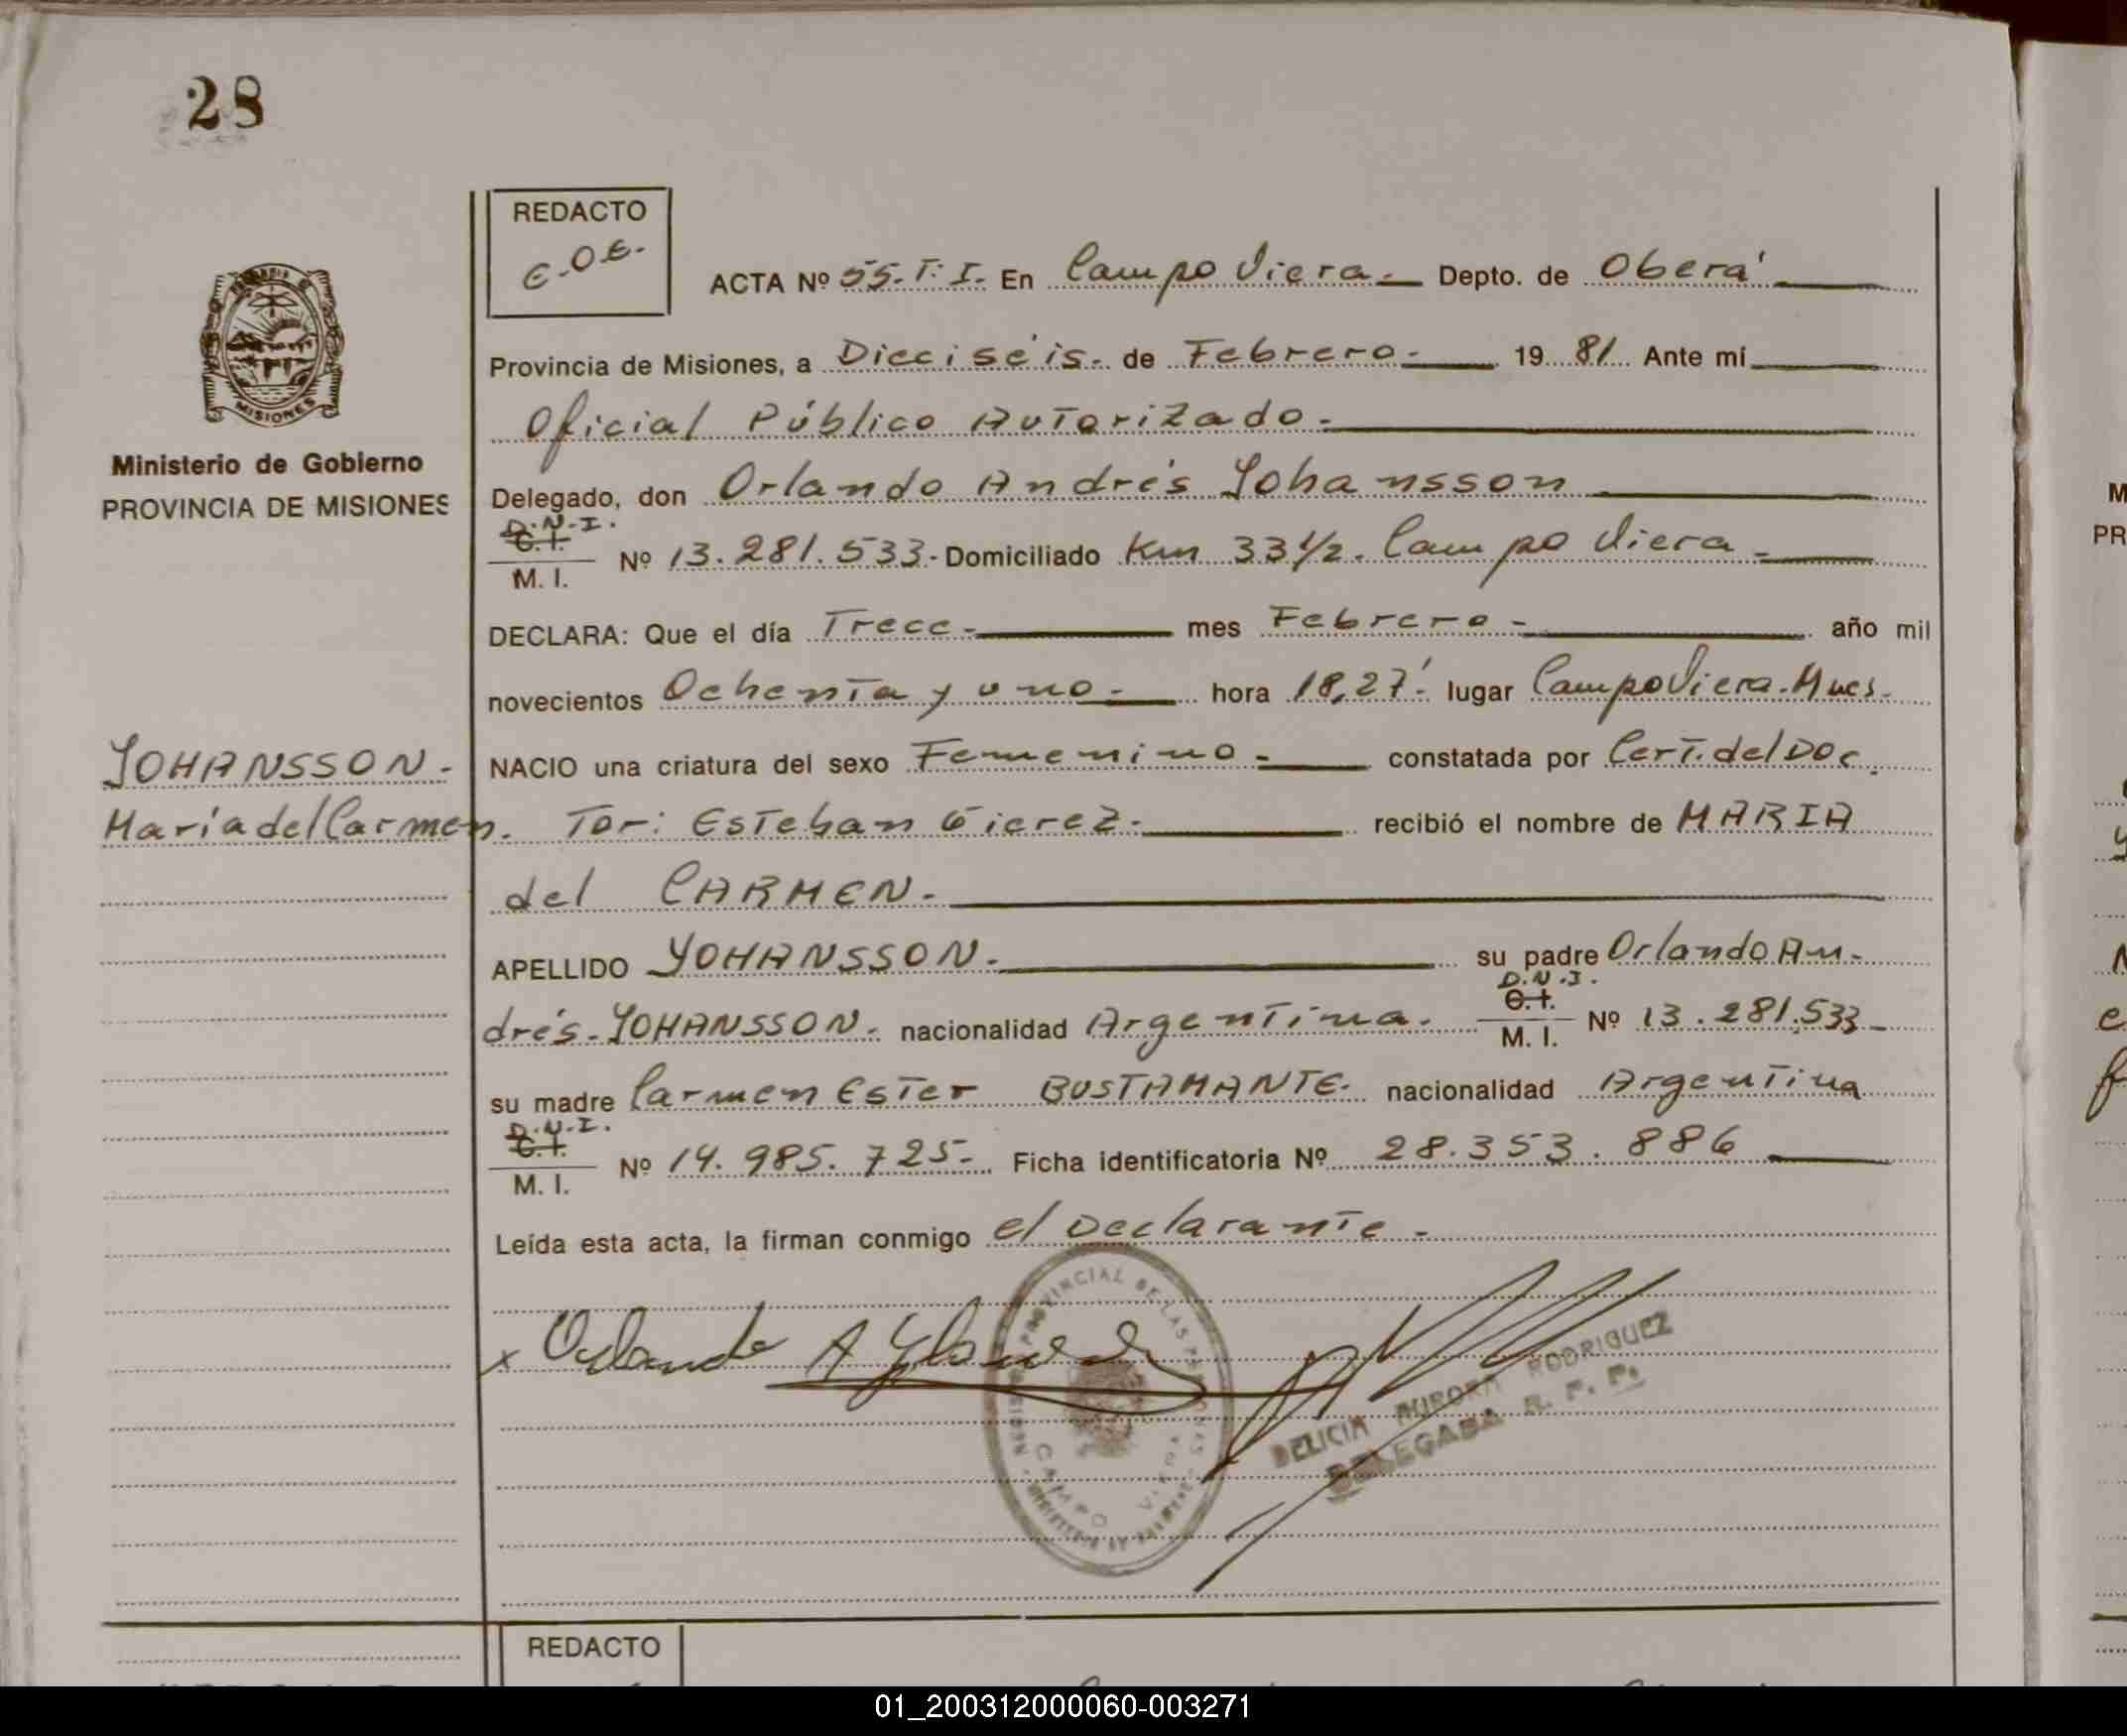 28
REDACTO
E.O.E.
ACTA Nº 55. T: I. En Campo Viera. Depto. de Oberá
Provincia de Misiones, a Dieciséis. de Febrero. 19 81 Ante mí
Oficial Público Autorizado.
MISIONES
Ministerio de Gobierno
PROVINCIA DE MISIONES
Delegado, don Orlando Andrés Yohansson
D.N.I.
C.I.
M. I. Nº 13.281.533. Domiciliado Km 33½. Campo Viera.
DECLARA: Que el día Trece. mes Febrero. año mil
novecientos Ochenta y uno. hora 18,27'. lugar Campo Viera. Mnes.
YOHANSSON.
María del Carmen.
NACIO una criatura del sexo Femenino. constatada por Cert. del DOC
Tor: Esteban Gierez. recibió el nombre de MARIA
del CARMEN.
APELLIDO YOHANSSON. su padre Orlando An-
drés. YOHANSSON. nacionalidad Argentina. D.N.I. C.I. M. I. Nº 13.281.533
su madre Carmen Ester BUSTAMANTE. nacionalidad Argentina
D.N.I.
C.I.
M. I. Nº 14.985.725. Ficha identificatoria Nº 28.353.886
Leída esta acta, la firman conmigo el Declarante.
x Orlando A
PROVINCIAL DE LAS PERSONAS
CAMPO VIERA
DELICIA AURORA RODRIGUEZ
DELEGADA R. P. P.
REDACTO
01_200312000060-003271